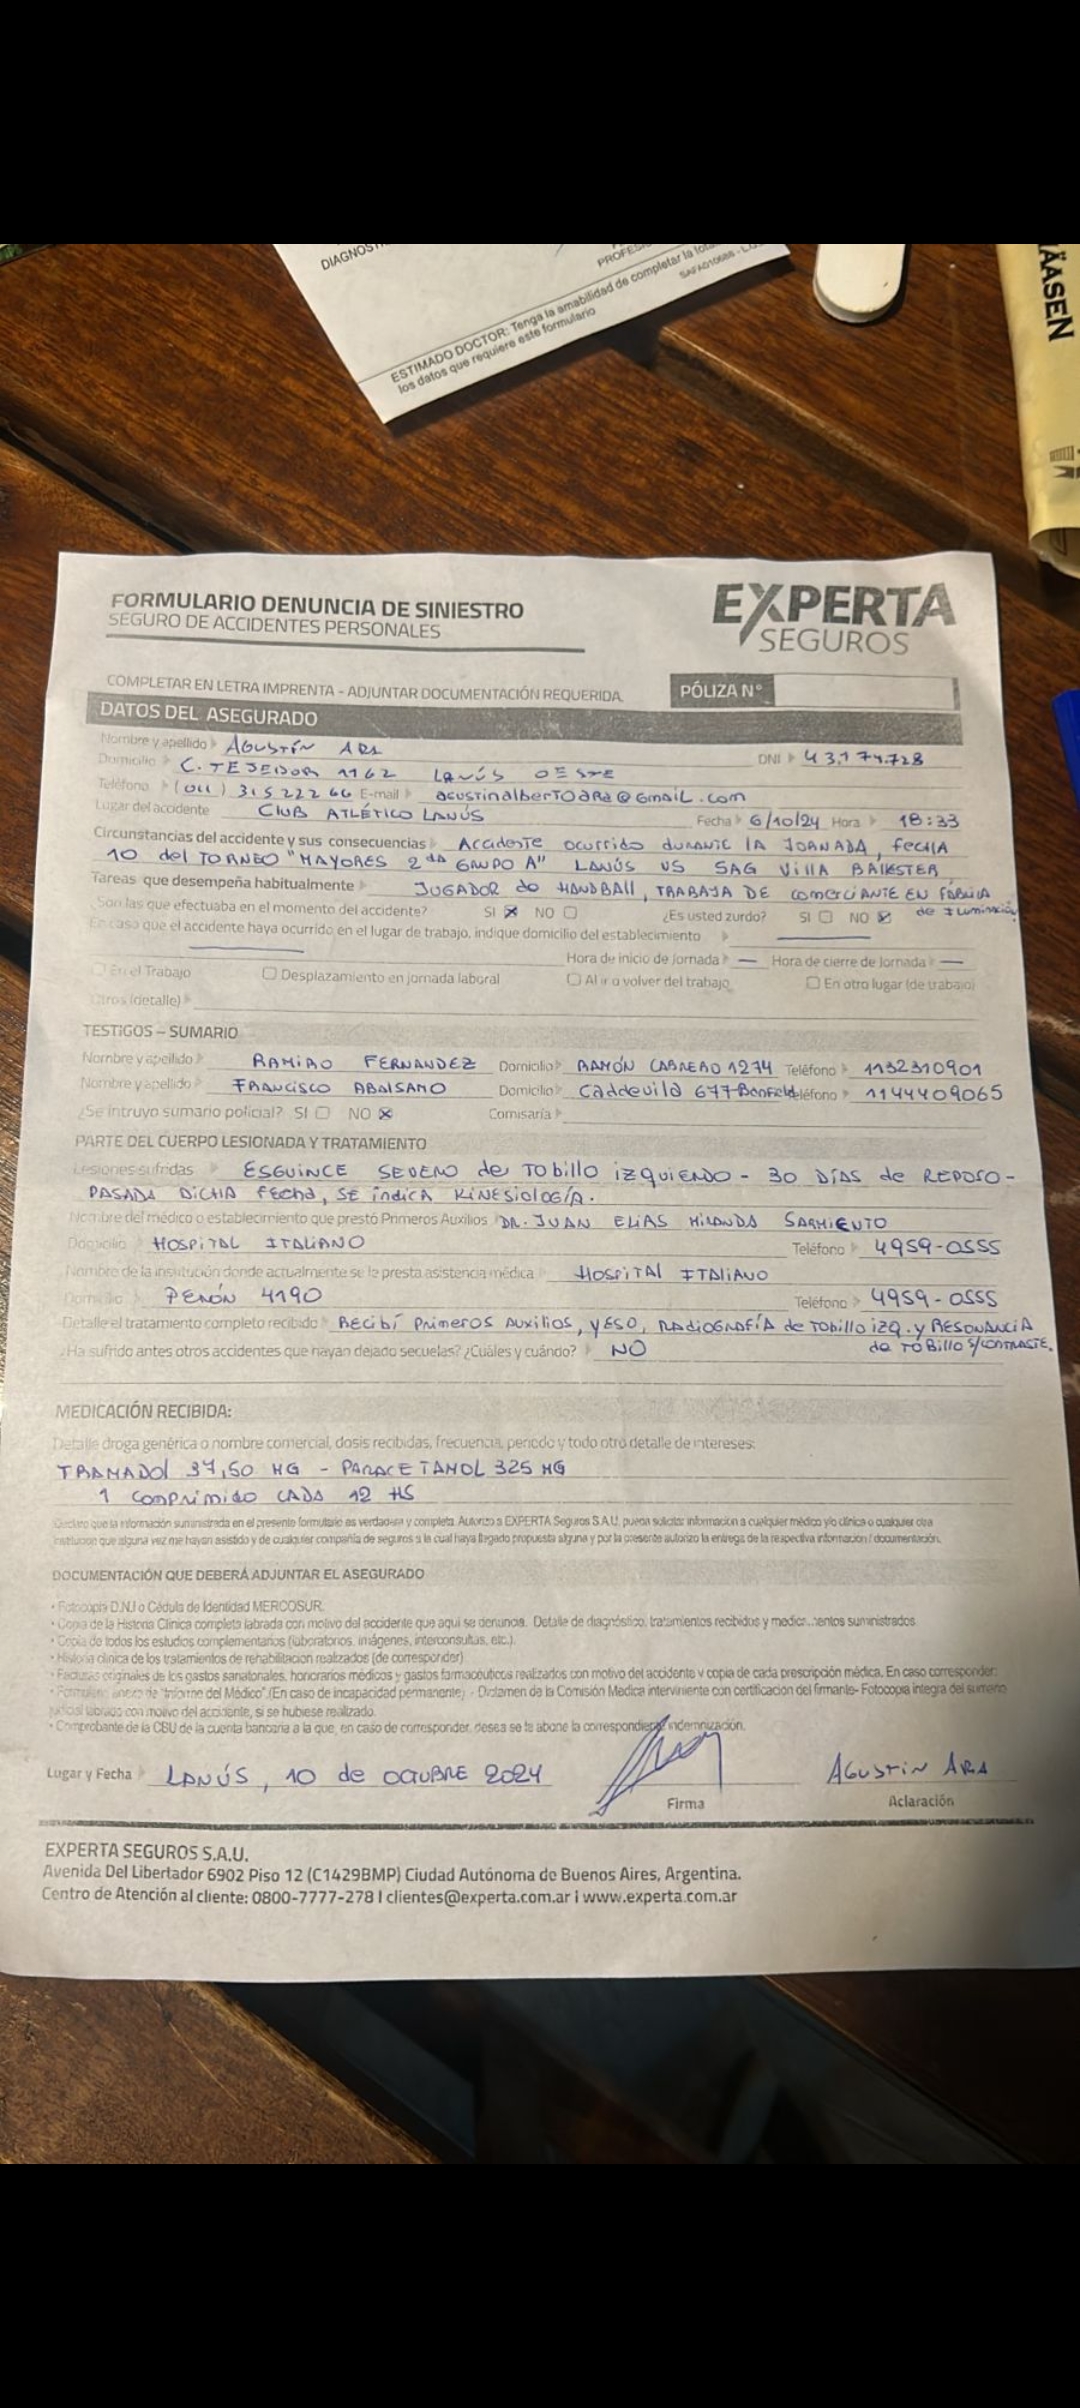 DIAGNOST
PROFES
SAFAG10685 - L.G.
ESTIMADO DOCTOR: Tenga la amabilidad de completar la tota
los datos que requiere este formulario
ÄASEN
FORMULARIO DENUNCIA DE SINIESTRO
SEGURO DE ACCIDENTES PERSONALES
EXPERTA
SEGUROS
COMPLETAR EN LETRA IMPRENTA - ADJUNTAR DOCUMENTACIÓN REQUERIDA. PÓLIZA N°
DATOS DEL ASEGURADO
Nombre y apellido AGUSTÍN ARA DNI 43.174.728
Domicilio C. TEJEDOR 1162 LANÚS OESTE
Teléfono (011) 31522266 E-mail agustinalbertoara@gmail.com
Lugar del accidente CLUB ATLÉTICO LANÚS Fecha 6/10/24 Hora 18:33
Circunstancias del accidente y sus consecuencias Accidente ocurrido durante la JORNADA, fecha
10 del TORNEO "MAYORES 2da GRUPO A" LANÚS VS SAG VILLA BALLESTER
Tareas que desempeña habitualmente JUGADOR de HANDBALL, TRABAJA DE comerciante EN FÁBRICA
de Iluminación
Son las que efectuaba en el momento del accidente? SI ☒ NO ☐ ¿Es usted zurdo? SI ☐ NO ☒
En caso que el accidente haya ocurrido en el lugar de trabajo, indique domicilio del establecimiento —
— Hora de inicio de Jornada — Hora de cierre de Jornada —
☐ En el Trabajo ☐ Desplazamiento en jornada laboral ☐ Al ir o volver del trabajo ☐ En otro lugar (de trabajo)
Otros (detalle)
TESTIGOS – SUMARIO
Nombre y apellido RAMIRO FERNANDEZ Domicilio RAMÓN CABRERO 1274 Teléfono 1132310901
Nombre y apellido FRANCISCO ABALSAMO Domicilio Caddevila 677-Banfield Teléfono 1144409065
¿Se intruyo sumario policial? SI ☐ NO ☒ Comisaría
PARTE DEL CUERPO LESIONADA Y TRATAMIENTO
Lesiones sufridas ESGUINCE SEVERO de TOBILLO IZQUIERDO - 30 DÍAS de REPOSO -
PASADA DICHA fecha, SE indica KINESIOLOGÍA.
Nombre del médico o establecimiento que prestó Primeros Auxilios DR. JUAN ELIAS MIRANDA SARMIENTO
Domicilio HOSPITAL ITALIANO Teléfono 4959-0555
Nombre de la institución donde actualmente se le presta asistencia médica HOSPITAL ITALIANO
Domicilio PERÓN 4190 Teléfono 4959-0555
Detalle el tratamiento completo recibido Recibí Primeros Auxilios, YESO, RADIOGRAFÍA de TOBILLO IZQ. y RESONANCIA
de TOBILLO S/CONTRASTE.
¿Ha sufrido antes otros accidentes que hayan dejado secuelas? ¿Cuáles y cuándo? NO
MEDICACIÓN RECIBIDA:
Detalle droga genérica o nombre comercial, dosis recibidas, frecuencia, periodo y todo otro detalle de intereses:
TRAMADOL 37,50 MG - PARACETAMOL 325 MG
1 comprimido CADA 12 HS
Declaro que la información suministrada en el presente formulario es verdadera y completa. Autorizo a EXPERTA Seguros S.A.U. puedan solicitar información a cualquier médico y/o clínica o cualquier otra
institución que alguna vez me hayan asistido y de cualquier compañía de seguros a la cual haya llegado propuesta alguna y por la presente autorizo la entrega de la respectiva información / documentación.
DOCUMENTACIÓN QUE DEBERÁ ADJUNTAR EL ASEGURADO
• Fotocopia D.N.I o Cédula de Identidad MERCOSUR.
• Copia de la Historia Clínica completa labrada con motivo del accidente que aquí se denuncia. Detalle de diagnóstico, tratamientos recibidos y medicamentos suministrados
• Copia de todos los estudios complementarios (laboratorios, imágenes, interconsultas, etc.).
• Historia clínica de los tratamientos de rehabilitación realizados (de corresponder)
• Facturas originales de los gastos sanatoriales, honorarios médicos y gastos farmacéuticos realizados con motivo del accidente y copia de cada prescripción médica. En caso corresponder:
• Formulario anexo de "Informe del Médico" (En caso de incapacidad permanente) - Dictamen de la Comisión Medica interviniente con certificación del firmante- Fotocopia integra del sumario
judicial labrado con motivo del accidente, si se hubiese realizado.
• Comprobante de la CBU de la cuenta bancaria a la que, en caso de corresponder, desea se le abone la correspondiente indemnización.
Lugar y Fecha LANÚS, 10 de OCTUBRE 2024 AGUSTÍN ARA
Firma Aclaración
EXPERTA SEGUROS S.A.U.
Avenida Del Libertador 6902 Piso 12 (C1429BMP) Ciudad Autónoma de Buenos Aires, Argentina.
Centro de Atención al cliente: 0800-7777-278 I clientes@experta.com.ar I www.experta.com.ar